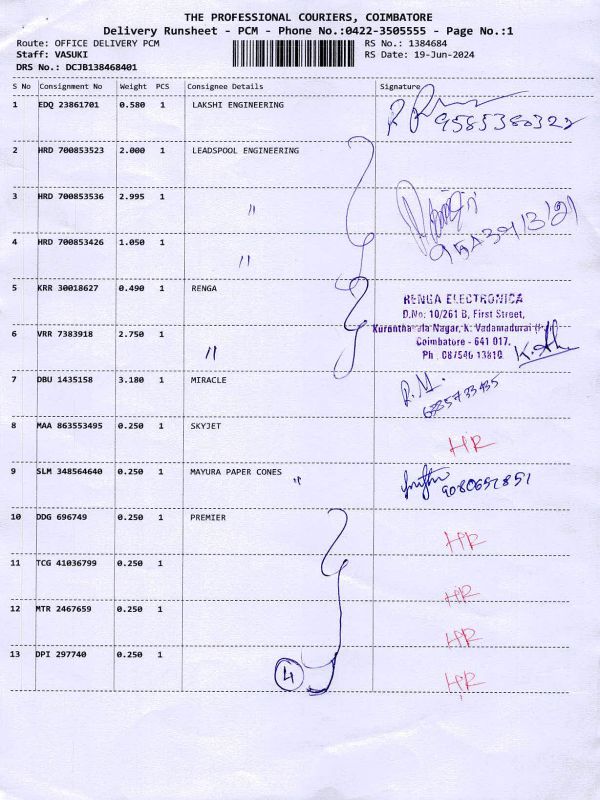 THE PROFESSIONAL COURIERS, COIMBATORE
Delivery Runsheet - PCM - Phone No.:0422-3505555 - Page No.:1
Route: OFFICE DELIVERY PCM RS No.: 1384684
Staff: VASUKI RS Date: 19-Jun-2024
DRS No.: DCJB138468401
S No Consignment No Weight PCS Consignee Details Signature
1 EDQ 23861701 0.580 1 LAKSHI ENGINEERING
9585380322
2 HRD 700853523 2.000 1 LEADSPOOL ENGINEERING
3 HRD 700853536 2.995 1 "
4 HRD 700853426 1.050 1 "
5 KRR 30018627 0.490 1 RENGA
RENGA ELECTRONICA
D.No: 10/261 B, First Street,
6 VRR 7383918 2.750 1 "
Nagar, K. Vadamadurai
Coimbatore - 641 017.
Ph : 087540 13810
7 DBU 1435158 3.180 1 MIRACLE
R.M.
8 MAA 863553495 0.250 1 SKYJET HR
9 SLM 348564640 0.250 1 MAYURA PAPER CONES "
9080652851
10 DDG 696749 0.250 1 PREMIER HR
11 TCG 41036799 0.250 1 HR
12 MTR 2467659 0.250 1 HR
13 DPI 297740 0.250 1 HR
4